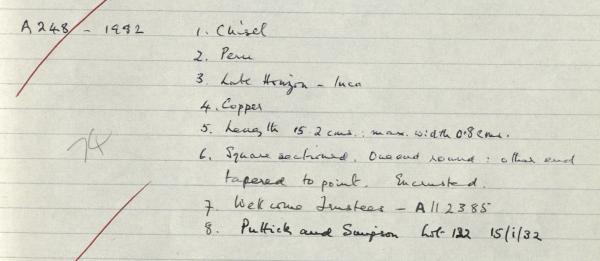 A 248 - 1982
1. Chisel
2. Peru
3. Late Horizon - Inca
4. Copper
5. Length 15.2 cms.: max. width 0.8 cms.
6. Square sectioned. One end round: other end
tapered to point. Encrusted.
74
7. Wellcome Trustees - A112385
8. Puttick and Simpson Lot 122 15/1/32